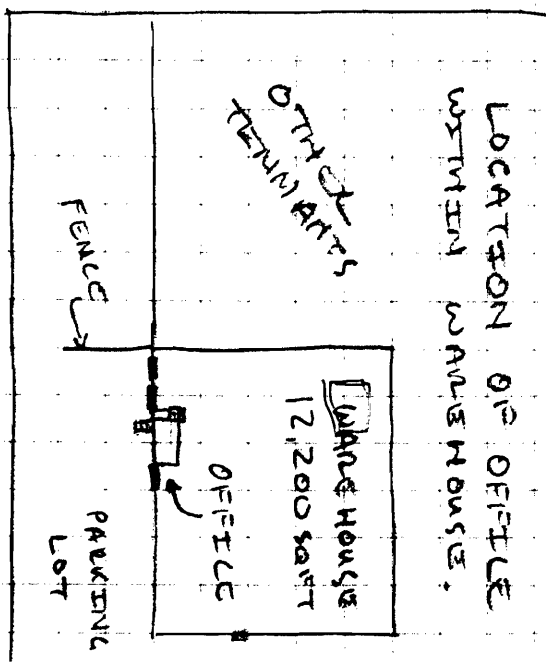 LOCATION OF OFFICE
WITHIN WAREHOUSE.
OTHER
TENNANTS
WAREHOUSE
12,200 SQ FT
OFFICE
FENCE
PARKING
LOT